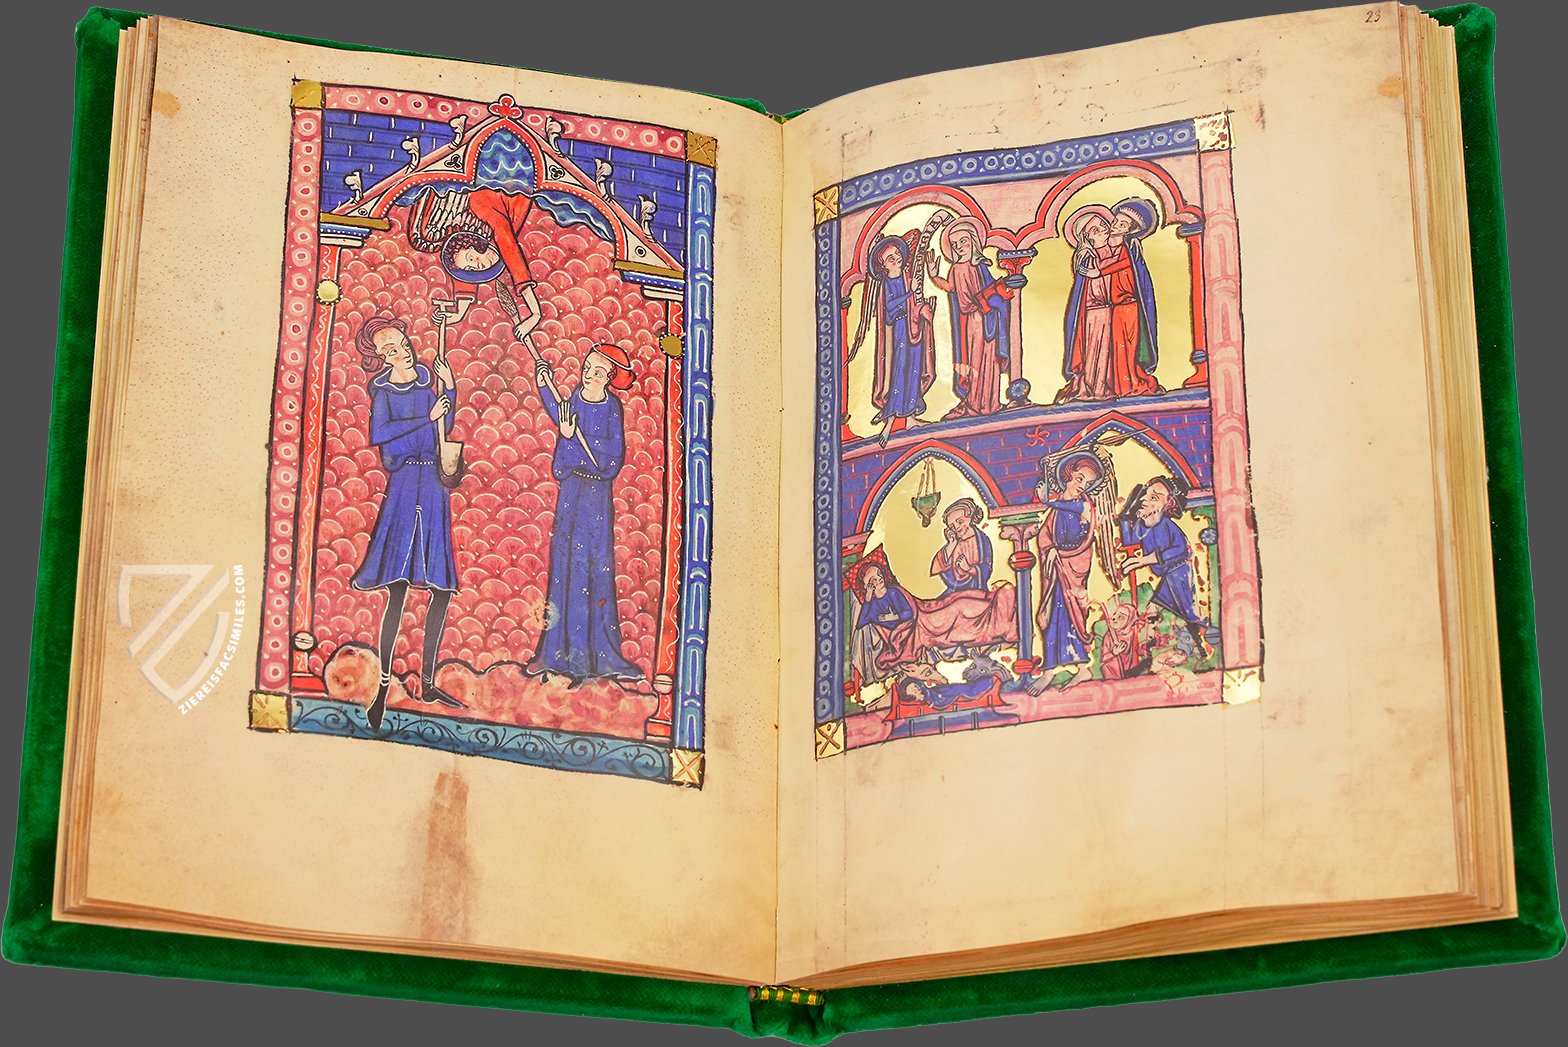 23
ZIEREISFACSIMILES.COM